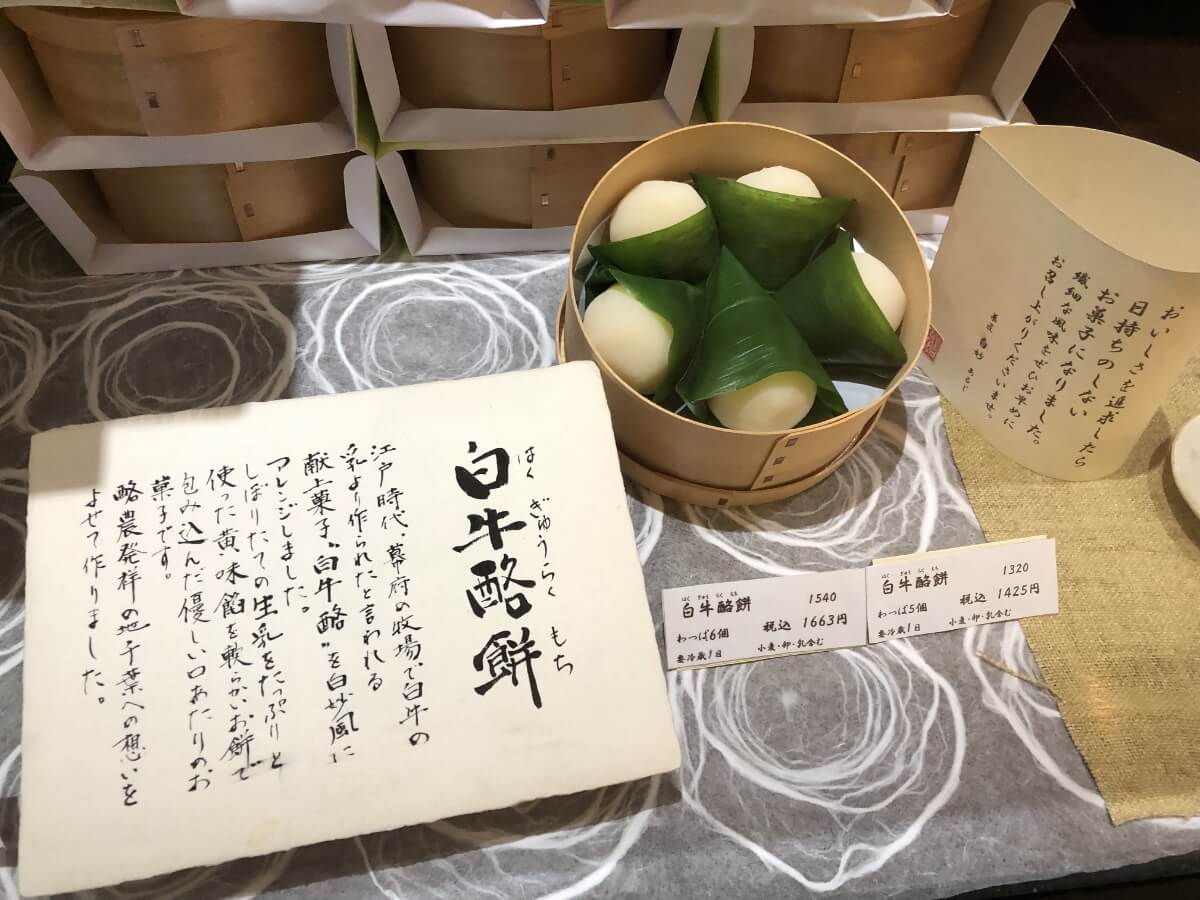 白牛酪餅
はく ぎゅう らく もち
江戸時代、幕府の牧場で白牛の
乳より作られたと言われる
献上菓子〝白牛酪〟を白妙風に
アレンジしました。
しぼりたての生乳をたっぷりと
使った黄味餡を軟らかいお餅で
包み込んだ優しい口あたりのお
菓子です。
酪農発祥の地千葉への想いを
よせて作りました。
はく ぎゅう らく もち
白牛酪餅 1540
わっぱ6個 税込 1663円
要冷蔵1日 小麦・卵・乳含む
はく ぎゅう らく もち
白牛酪餅 1320
わっぱ5個 税込 1425円
要冷蔵1日 小麦・卵・乳含む
おいしさを追求したら
日持ちのしない
お菓子になりました。
繊細な風味をぜひお早めに
お召し上がりくださいませ。